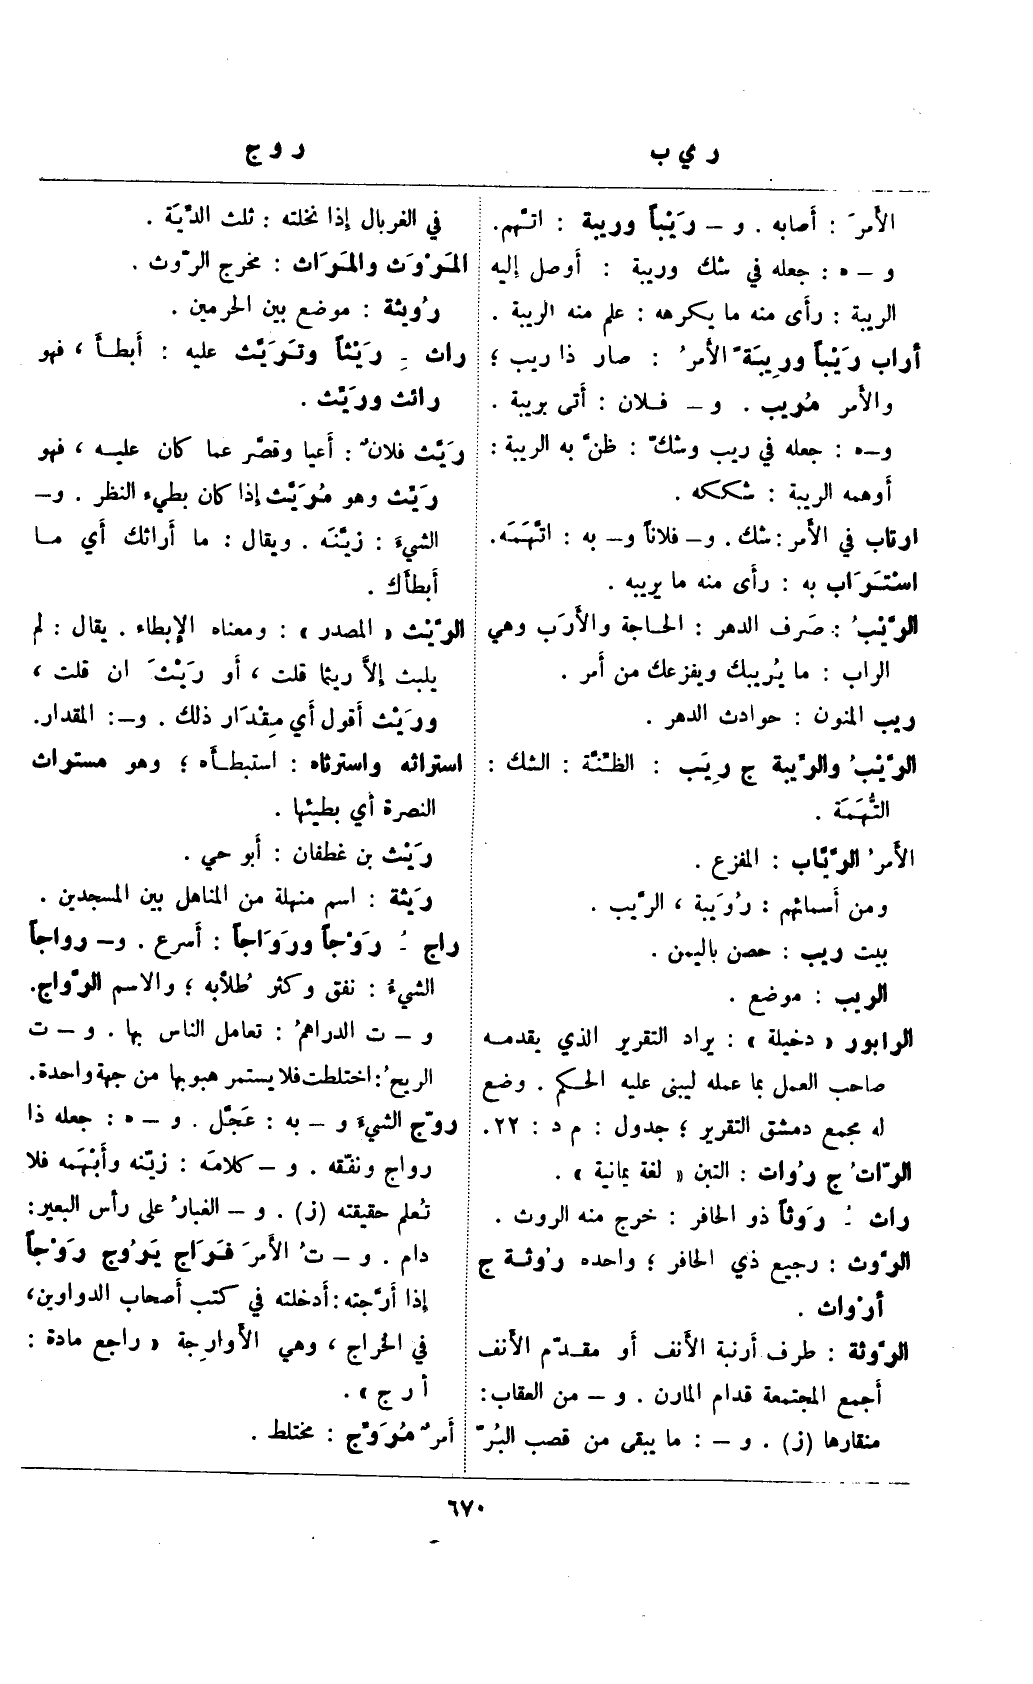 ر ي ب
ر و ج
الأمرَ : أصابه . و – رَيْباً وريبة : اتّهم.
و – ه : جعله في شك وريبة : أوصل إليه
الريبة : رأى منه ما يكرهه : علم منه الريبة .
أراب رَيْباً ورِيبَةً الأمرُ : صار ذا ريب ؛
والأمر مُريب . و – فلان : أتى بريبة .
و–ه : جعله في ريب وشكّ : ظنّ به الريبة :
أوهمه الريبة : شككه .
ارتاب في الأمر : شك . و– فلاناً و– به : اتَّهَمَه.
اسْتَرَاب به : رأى منه ما يريبه .
الرَّيْبُ : صَرف الدهر : الحاجة والأرَب وهي
الراب : ما يُريبك ويفزعك من أمر .
ريب المنون : حوادث الدهر .
الرَّيْبُ والرِّيبة ج رِيَب : الظِّنَّة : الشك :
التُّهَمَة .
الأمرُ الرَّيَّاب : المفزع .
ومن أسمائهم : رُوَيبة ، الرَّيب .
بيت ريب : حصن باليمن .
الريب : موضع .
الرابور « دخيلة » : يراد التقرير الذي يقدمه
صاحب العمل بما عمله ليبنى عليه الحكم . وضع
له مجمع دمشق التقرير ؛ جدول : م د : ٢٢.
الرّاتُ ج رُوات : التبن « لغة يمانية » .
راث ـُ رَوثاً ذو الحافر : خرج منه الروث .
الرَّوث : رجيع ذي الحافر ؛ واحده رَوْثة ج
أرْواث .
الرَّوثة : طرف أرنبة الأنف أو مقدّم الأنف
أجمع المجتمعة قدام المارن . و – من العقاب:
منقارها (ز) . و – : ما يبقى من قصب البُرّ
في الغربال إذا نخلته : ثلث الدِّيَة .
المَرْوَث والمَرَاث : مخرج الرَّوث .
رُويثة : موضع بين الحرمين .
راث ـِ رَيْثاً وتَرَيَّث عليه : أبطأ ، فهو
رائث وريِّث .
رَيَّث فلانٌ : أعيا وقصَّر عما كان عليه ، فهو
رَيِّث وهو مُرَيَّث إذا كان بطيء النظر . و–
الشيءَ : زيَّنَه . ويقال : ما أراثك أي ما
أبطأك .
الرَّيْث « المصدر » : ومعناه الإبطاء . يقال : لم
يلبث إلاَّ ريثما قلت ، أو رَيْثَ ان قلت ،
ورَيْث أقول أي مِقْدَار ذلك . و–: المقدار.
استراثه واسترثاه : استبطأه ؛ وهو مستراث
النصرة أي بطيئها .
رَيْث بن غطفان : أبو حي .
رَيثة : اسم منهلة من المناهل بين المسجدين .
راج ـُ رَوْجاً ورَوَاجاً : أسرع . و– رواجاً
الشيءُ : نفق وكثر طُلاَّبه ؛ والاسم الرَّواج.
و – ت الدراهمُ : تعامل الناس بها . و – ت
الريحُ : اختلطت فلا يستمر هبوبها من جهة واحدة.
روّج الشيءَ و – به : عَجَّل . و – ه : جعله ذا
رواج ونفّقه . و – كلامَه : زيّنه وأبْهَمه فلا
تُعلم حقيقته (ز) . و – الغبارُ على رأس البعير:
دام . و – تُ الأمرَ فَرَاج يَرُوج رَوْجاً
إذا أرَّجته : أدخلته في كتب أصحاب الدواوين،
في الخراج ، وهي الأوارِجة « راجع مادة :
أ ر ج » .
أمرٌ مُرَوَّج : مختلط .
٦٧٠